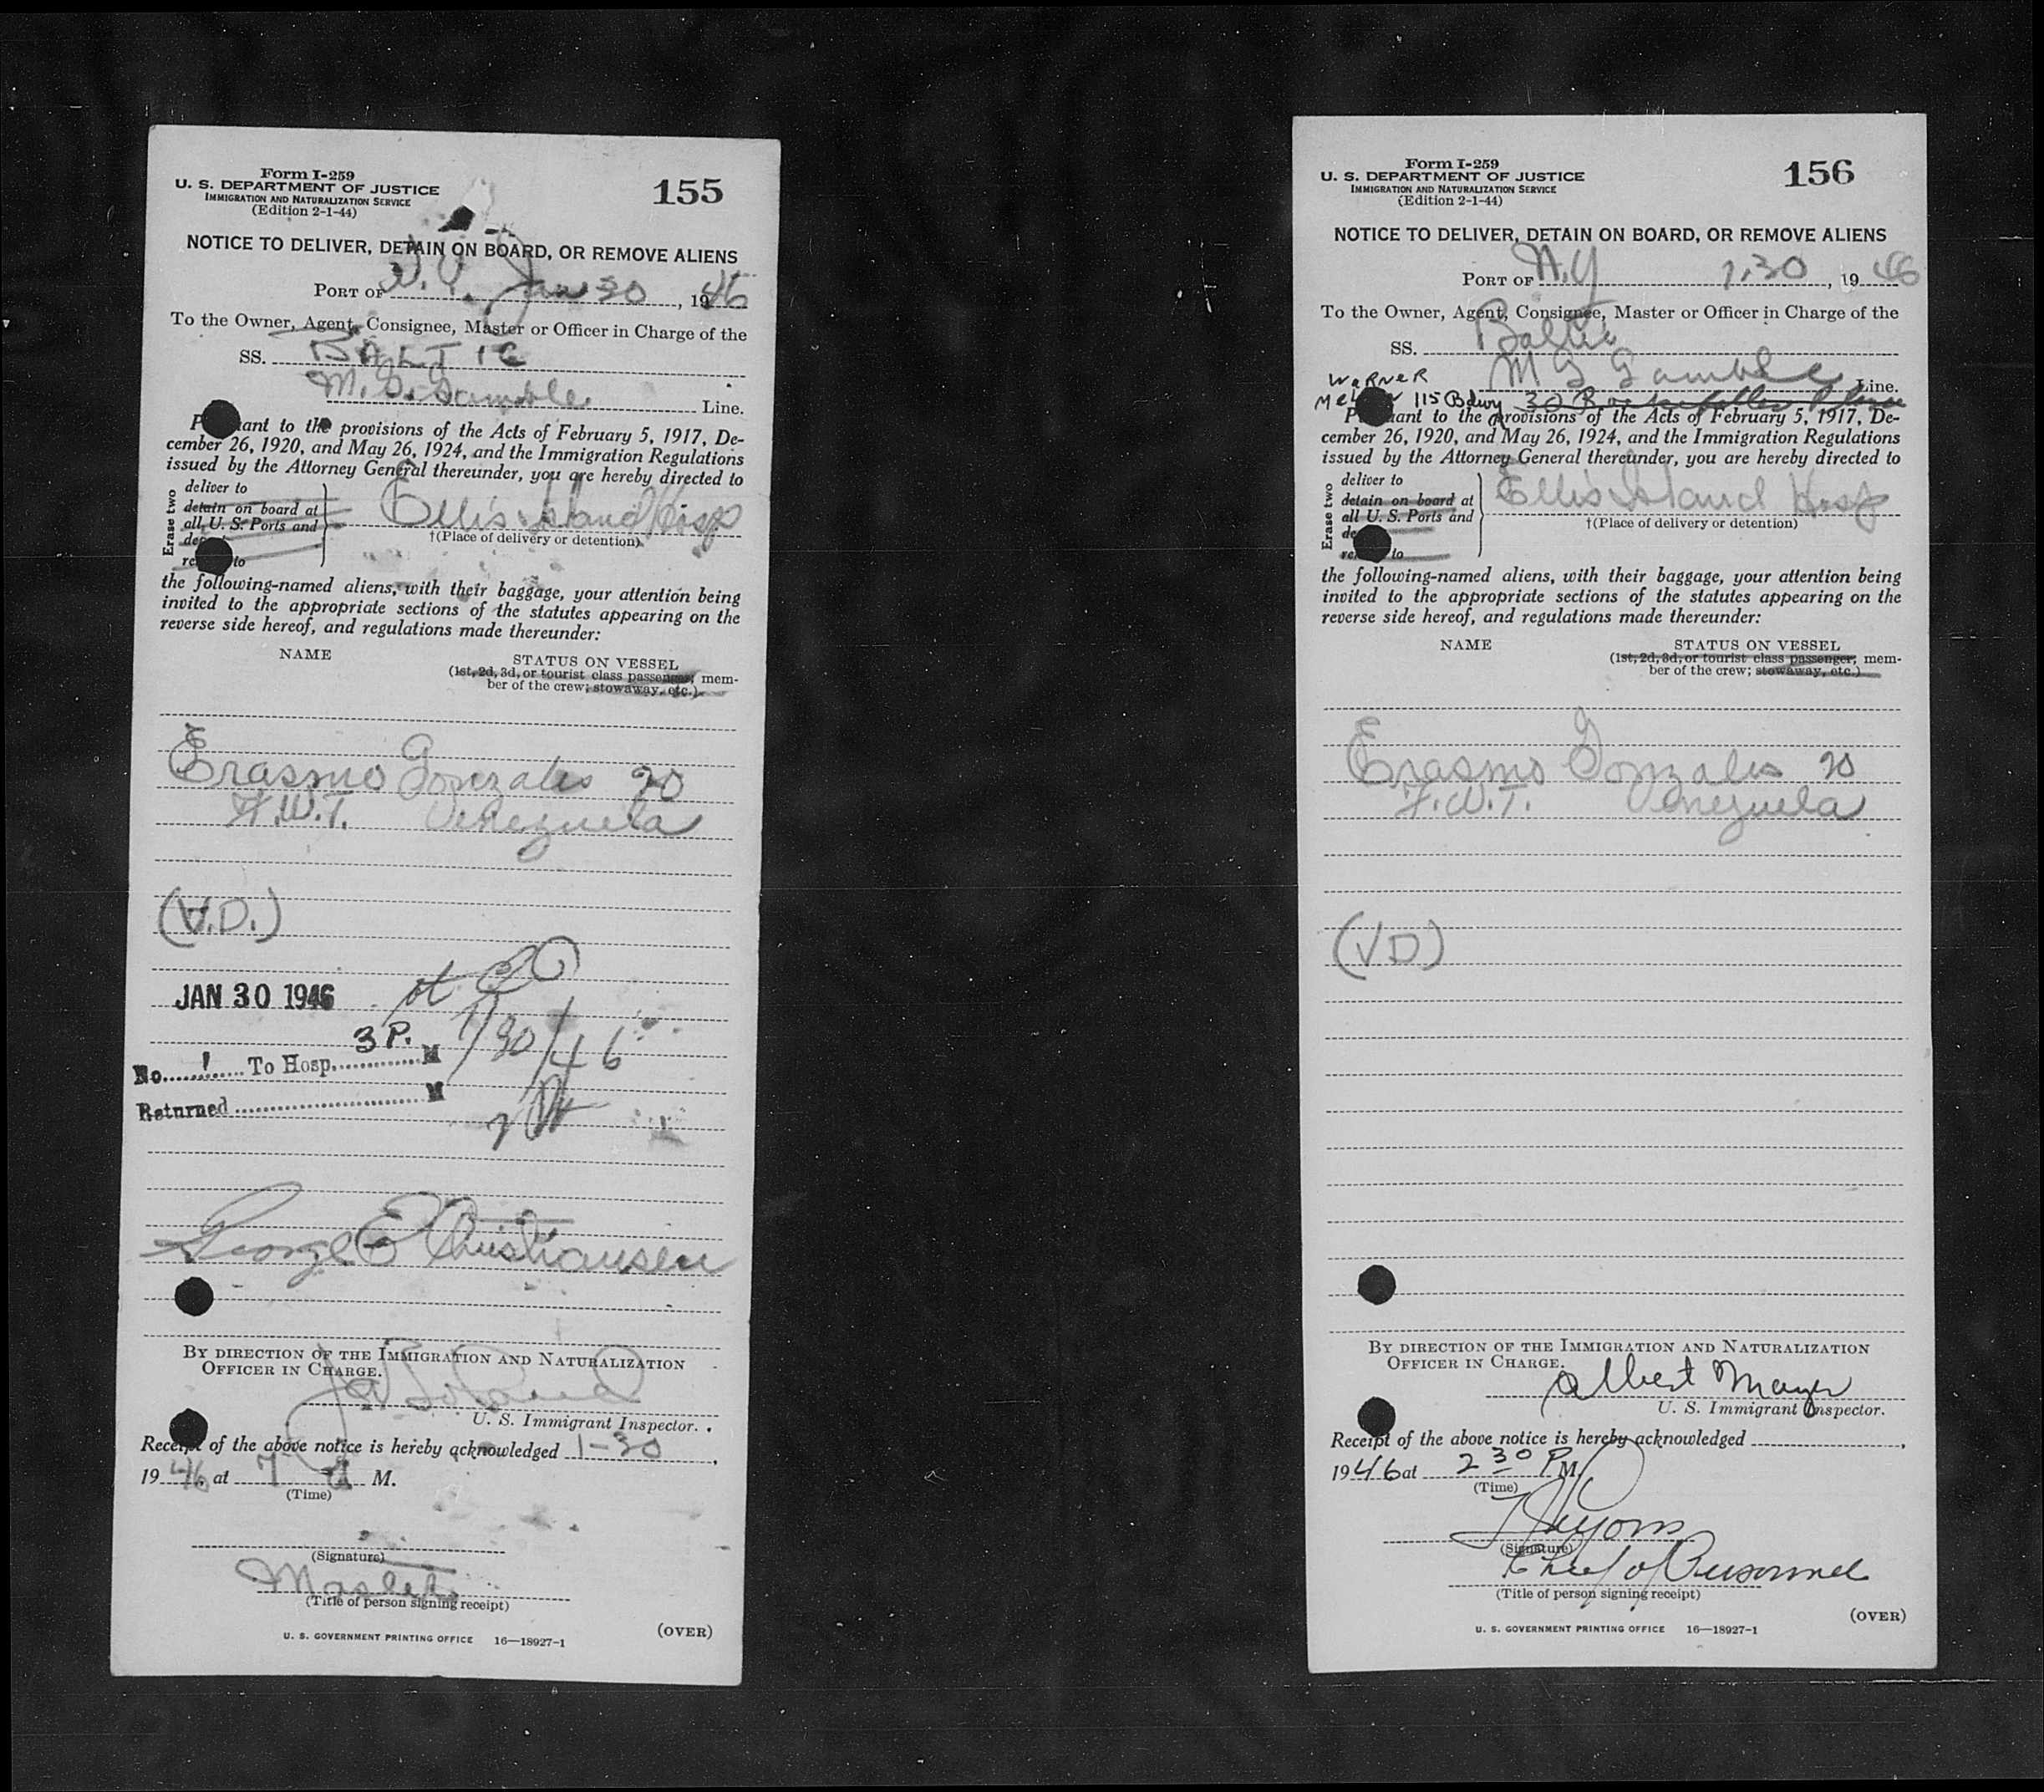 Form I-259
U. S. DEPARTMENT OF JUSTICE
IMMIGRATION AND NATURALIZATION SERVICE
(Edition 2-1-44)
155
NOTICE TO DELIVER, DETAIN ON BOARD, OR REMOVE ALIENS
PORT OF N.Y. Jan 30, 1946
To the Owner, Agent, Consignee, Master or Officer in Charge of the
SS. BALTIC
M. G. Gamble Line.
P ant to the provisions of the Acts of February 5, 1917, De-
cember 26, 1920, and May 26, 1924, and the Immigration Regulations
issued by the Attorney General thereunder, you are hereby directed to
Erase two
deliver to
detain on board at
all U. S. Ports and
de
re to
Ellis Island Hosp
†(Place of delivery or detention)
the following-named aliens, with their baggage, your attention being
invited to the appropriate sections of the statutes appearing on the
reverse side hereof, and regulations made thereunder:
NAME
STATUS ON VESSEL
(1st, 2d, 3d, or tourist class passenger; mem-
ber of the crew; stowaway, etc.)
Erasmo Gonzales 20
F.W.T. Venezuela
(V.D.)
JAN 30 1946
1/30/46
No. 1 To Hosp. 3 P. M
Returned M
George E Christiansen
BY DIRECTION OF THE IMMIGRATION AND NATURALIZATION
OFFICER IN CHARGE.
U. S. Immigrant Inspector.
Receipt of the above notice is hereby acknowledged 1-30,
1946 at 7 A M.
(Time)
(Signature)
Master
(Title of person signing receipt)
(OVER)
U. S. GOVERNMENT PRINTING OFFICE 16—18927-1
Form I-259
U. S. DEPARTMENT OF JUSTICE
IMMIGRATION AND NATURALIZATION SERVICE
(Edition 2-1-44)
156
NOTICE TO DELIVER, DETAIN ON BOARD, OR REMOVE ALIENS
PORT OF N.Y 1.30, 1946
To the Owner, Agent, Consignee, Master or Officer in Charge of the
SS. Baltic
M G Gamble Line.
WARNER
115 Bdwy 30 Rockefeller Plaza
P ant to the provisions of the Acts of February 5, 1917, De-
cember 26, 1920, and May 26, 1924, and the Immigration Regulations
issued by the Attorney General thereunder, you are hereby directed to
Erase two
deliver to
detain on board at
all U. S. Ports and
de
re to
Ellis Island Hosp
†(Place of delivery or detention)
the following-named aliens, with their baggage, your attention being
invited to the appropriate sections of the statutes appearing on the
reverse side hereof, and regulations made thereunder:
NAME
STATUS ON VESSEL
(1st, 2d, 3d, or tourist class passenger; mem-
ber of the crew; stowaway, etc.)
Erasmo Gonzales 20
F.W.T. Venezuela
(VD)
BY DIRECTION OF THE IMMIGRATION AND NATURALIZATION
OFFICER IN CHARGE.
Albert Mayer
U. S. Immigrant Inspector.
Receipt of the above notice is hereby acknowledged ,
1946 at 2 30 P M.
(Time)
(Signature)
Chief of Personnel
(Title of person signing receipt)
(OVER)
U. S. GOVERNMENT PRINTING OFFICE 16—18927-1